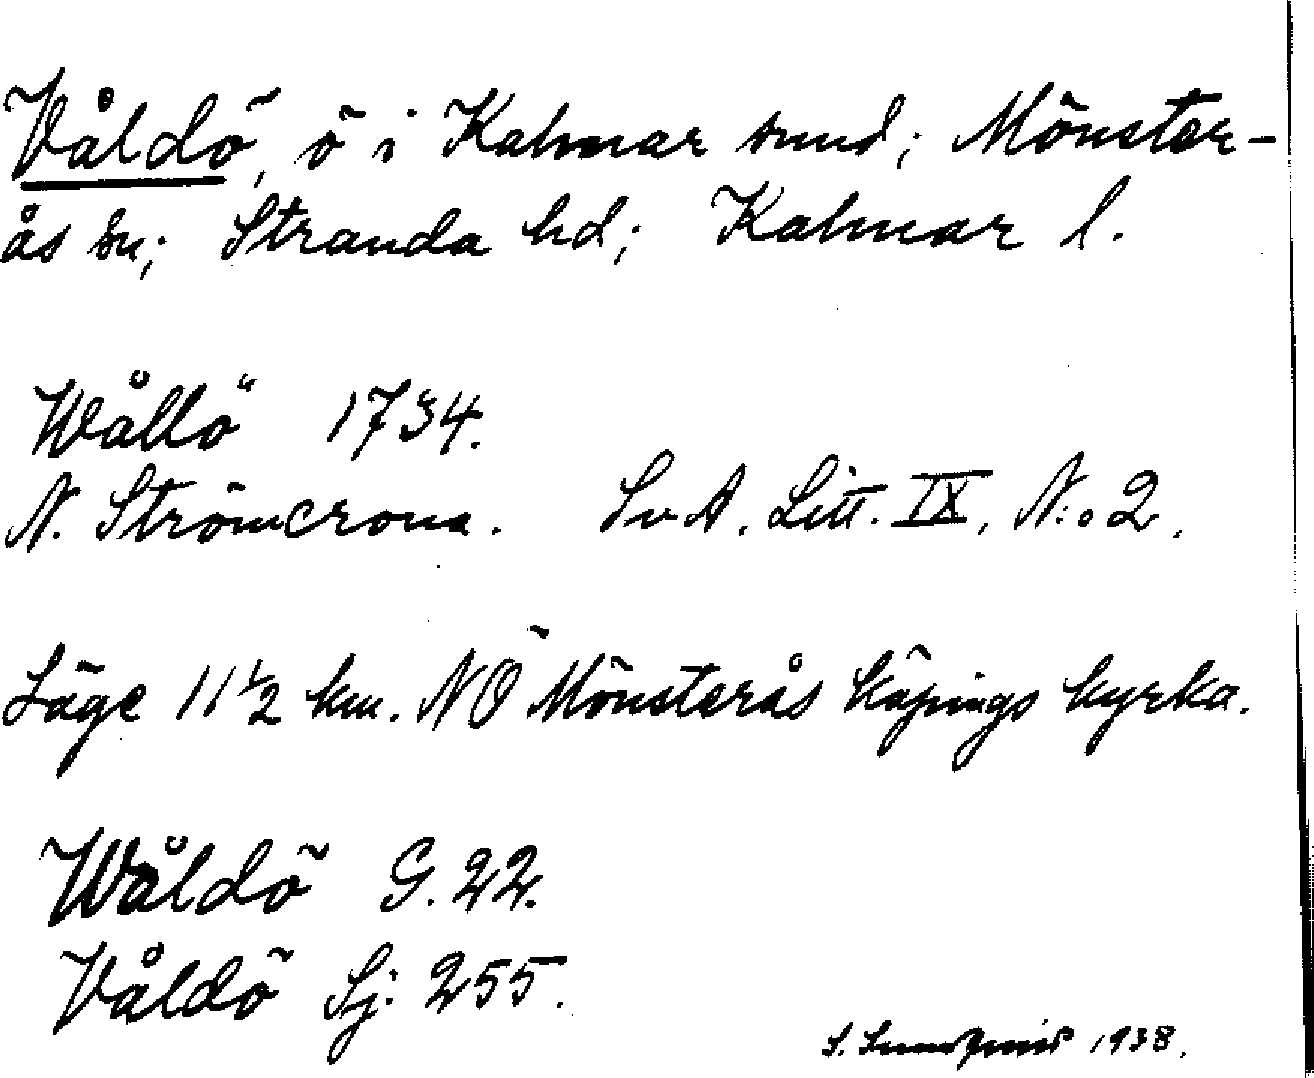 Våldö, ö i Kalmar sund; Mönster-
ås sn; Stranda hd; Kalmar l.
Wållö 1734.
N. Strömcrona. SvA. Litt. IX, N:o 2.
Läge 11 1/2 km. NÖ Mönsterås köpings kyrka.
Wåldö G. 22.
Våldö Sj: 255.
S. Sundqvist 1938.